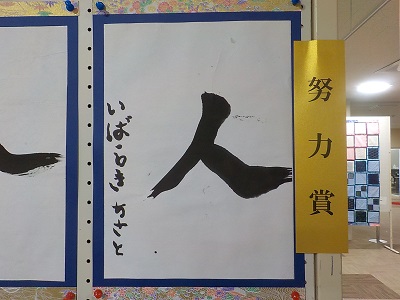 努力賞
人
いばらき あさと